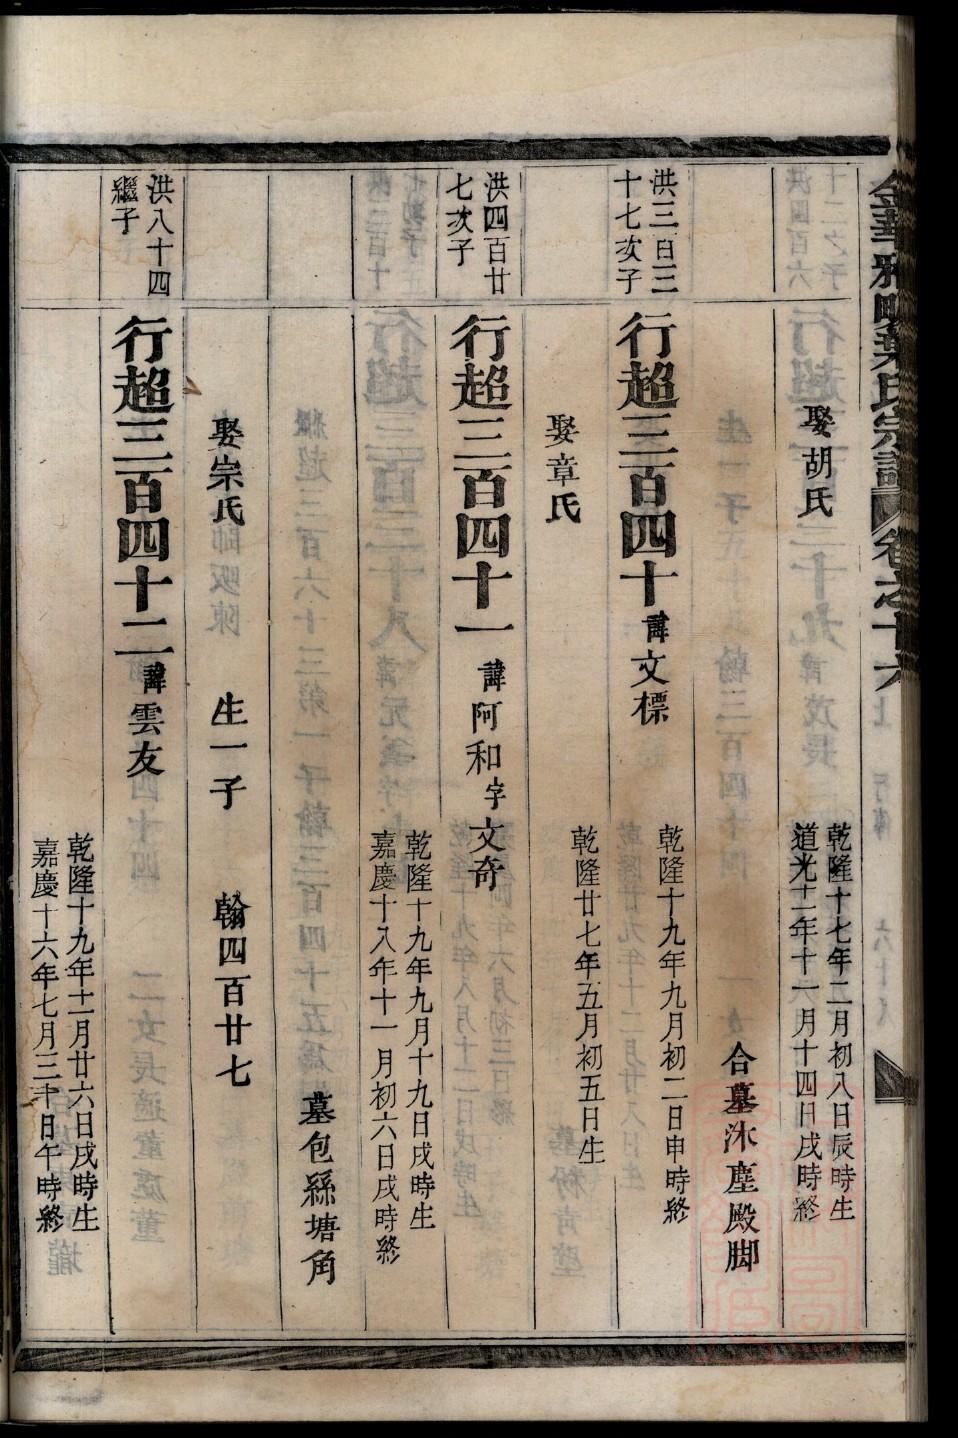 娶胡氏
乾隆十七年二月初八日辰時生
道光十二年十一月十四日戌時終
合墓沐塵殿脚
洪三百三十七次子
行超三百四十 諱文標
乾隆十九年九月初二日申時終
娶章氏
乾隆廿七年五月初五日生
洪四百廿七次子
行超三百四十一 諱阿和字文奇
乾隆十九年九月十九日戌時生
嘉慶十八年十一月初六日戌時終
墓包絲塘角
娶宗氏 生一子 翰四百廿七
洪八十四繼子
行超三百四十二 諱雲友
乾隆十九年十二月廿六日戌時生
嘉慶十六年七月三十日午時終